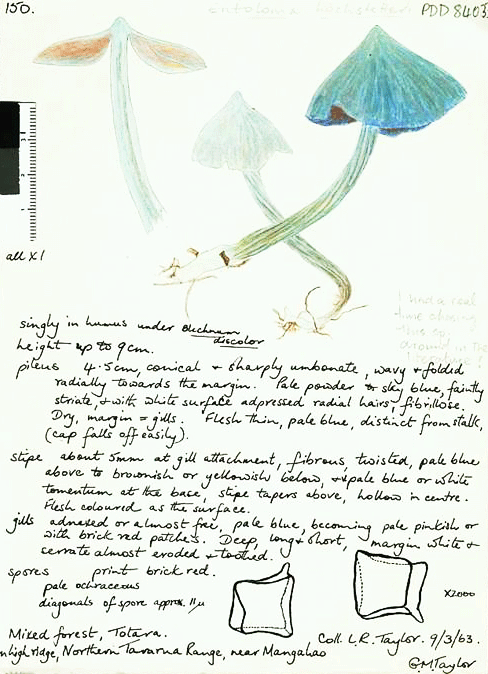 150.
entoloma hochstetteri
PDD 8403
all x 1
I had a real
time chasing
this so
around in the
singly in humus under Blechnum
discolor
height up to 9cm.
pileus 4.5cm, conical & sharply umbonate, wavy & folded
radially towards the margin. Pale powder or sky blue, faintly
striate, & with white surface adpressed radial hairs, fibrillose.
Dry, margin = gills. Flesh thin, pale blue, distinct from stalk,
(cap falls off easily).
stipe about 5mm at gill attachment, fibrous, twisted, pale blue
above to brownish or yellowish below, & pale blue or white
tomentum at the base, stipe tapers above, hollow in centre.
Flesh coloured as the surface.
gills adnexed or almost free, pale blue, becoming pale pinkish or
with brick red patches. Deep, long & short, margin white &
serrate almost eroded & toothed.
spores print brick red.
pale ochraceous
diagonals of spore approx. 11µ
x2000
Mixed forest, Totara.
Coll. L.R. Taylor. 9/3/63.
n high ridge, Northern Tararua Range, near Mangahao
G.M Taylor